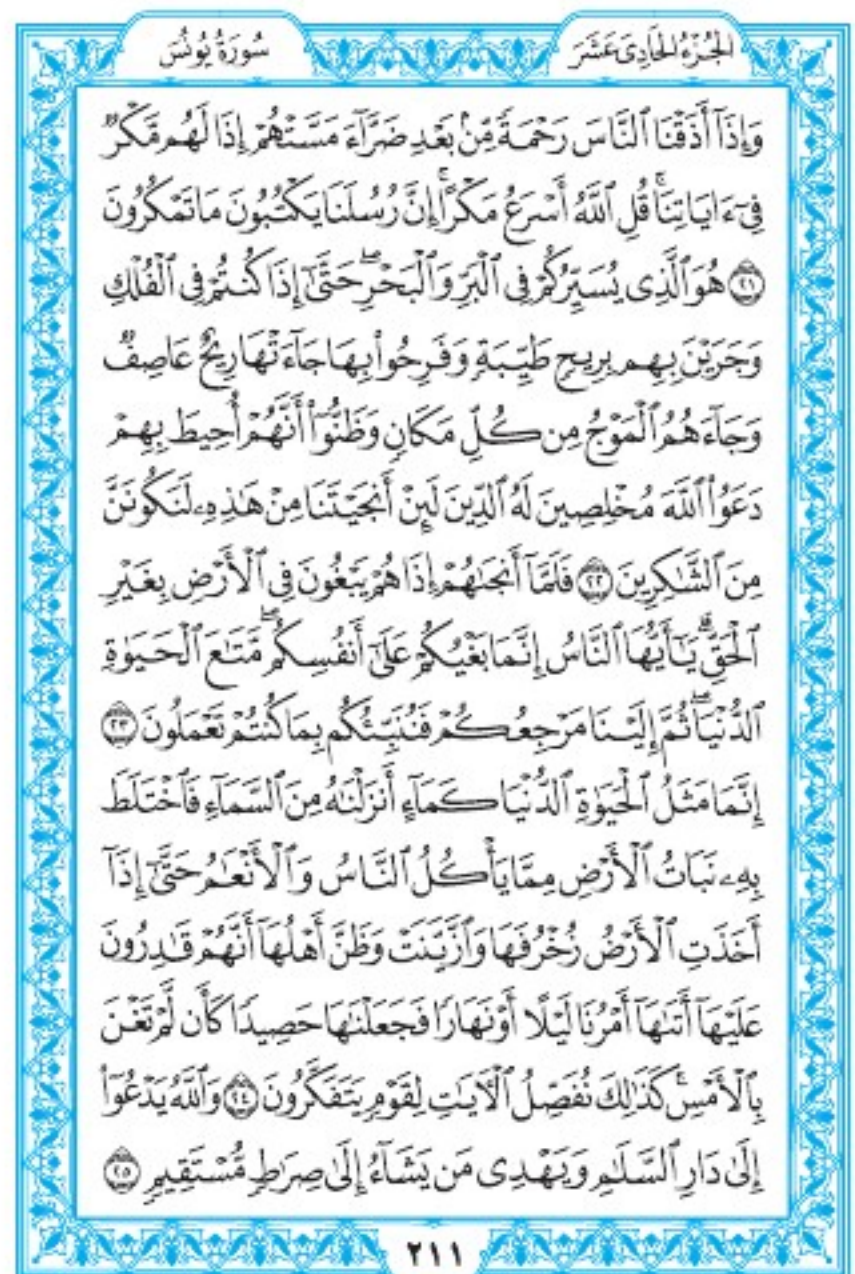 الجُزْءُ الحَادِيَ عَشَرَ
سُورَةُ يُونُسَ
وَإِذَآ أَذَقْنَا ٱلنَّاسَ رَحْمَةً مِّنۢ بَعْدِ ضَرَّآءَ مَسَّتْهُمْ إِذَا لَهُم مَّكْرٌ
فِىٓ ءَايَاتِنَا ۚ قُلِ ٱللَّهُ أَسْرَعُ مَكْرًا ۚ إِنَّ رُسُلَنَا يَكْتُبُونَ مَا تَمْكُرُونَ
٢١ هُوَ ٱلَّذِى يُسَيِّرُكُمْ فِى ٱلْبَرِّ وَٱلْبَحْرِ ۖ حَتَّىٰٓ إِذَا كُنتُمْ فِى ٱلْفُلْكِ
وَجَرَيْنَ بِهِم بِرِيحٍ طَيِّبَةٍ وَفَرِحُوا۟ بِهَا جَآءَتْهَا رِيحٌ عَاصِفٌ
وَجَآءَهُمُ ٱلْمَوْجُ مِن كُلِّ مَكَانٍ وَظَنُّوٓا۟ أَنَّهُمْ أُحِيطَ بِهِمْ
دَعَوُا۟ ٱللَّهَ مُخْلِصِينَ لَهُ ٱلدِّينَ لَئِنْ أَنجَيْتَنَا مِنْ هَٰذِهِۦ لَنَكُونَنَّ
مِنَ ٱلشَّٰكِرِينَ ٢٢ فَلَمَّآ أَنجَىٰهُمْ إِذَا هُمْ يَبْغُونَ فِى ٱلْأَرْضِ بِغَيْرِ
ٱلْحَقِّ ۗ يَٰٓأَيُّهَا ٱلنَّاسُ إِنَّمَا بَغْيُكُمْ عَلَىٰٓ أَنفُسِكُم ۖ مَّتَٰعَ ٱلْحَيَوٰةِ
ٱلدُّنْيَا ۖ ثُمَّ إِلَيْنَا مَرْجِعُكُمْ فَنُنَبِّئُكُم بِمَا كُنتُمْ تَعْمَلُونَ ٢٣
إِنَّمَا مَثَلُ ٱلْحَيَوٰةِ ٱلدُّنْيَا كَمَآءٍ أَنزَلْنَٰهُ مِنَ ٱلسَّمَآءِ فَٱخْتَلَطَ
بِهِۦ نَبَاتُ ٱلْأَرْضِ مِمَّا يَأْكُلُ ٱلنَّاسُ وَٱلْأَنْعَٰمُ حَتَّىٰٓ إِذَآ
أَخَذَتِ ٱلْأَرْضُ زُخْرُفَهَا وَٱزَّيَّنَتْ وَظَنَّ أَهْلُهَآ أَنَّهُمْ قَٰدِرُونَ
عَلَيْهَآ أَتَىٰهَآ أَمْرُنَا لَيْلًا أَوْ نَهَارًا فَجَعَلْنَٰهَا حَصِيدًا كَأَن لَّمْ تَغْنَ
بِٱلْأَمْسِ ۚ كَذَٰلِكَ نُفَصِّلُ ٱلْءَايَٰتِ لِقَوْمٍ يَتَفَكَّرُونَ ٢٤ وَٱللَّهُ يَدْعُوٓا۟
إِلَىٰ دَارِ ٱلسَّلَٰمِ وَيَهْدِى مَن يَشَآءُ إِلَىٰ صِرَٰطٍ مُّسْتَقِيمٍ ٢٥
٢١١